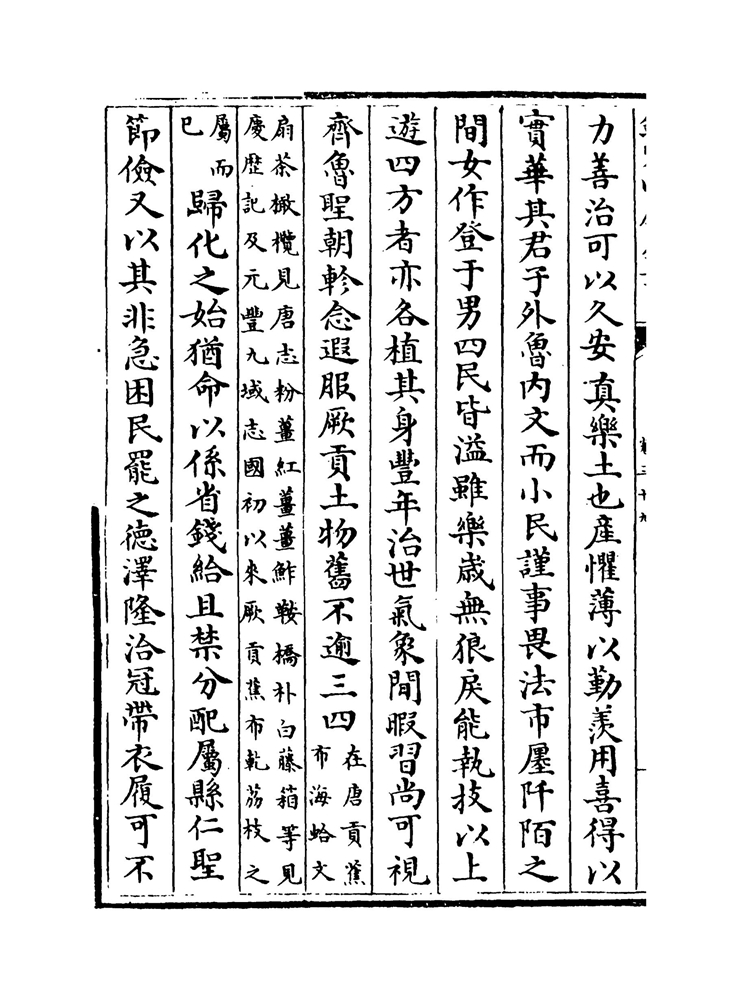 力善治可以久安真樂土也產懼薄以勤羨用喜得以
實華其君子外魯內文而小民謹事畏法市廛阡陌之
間女作登于男四民皆溢雖樂歲無狼戾能執技以上
遊四方者亦各植其身豐年治世氣象閒暇習尚可視
齊魯聖朝軫念遐服厥貢土物舊不逾三四
在唐貢蕉
布海蛤文
扇茶橄欖見唐志粉薑紅薑薑鮓鞍橋朴白藤箱等見
慶歴記及元豐九域志國初以來厥貢蕉布乾荔枝之
屬而
已
歸化之始猶命以係省錢給且禁分配屬縣仁聖
節儉又以其非急困民罷之德澤隆洽冠帶衣履可不